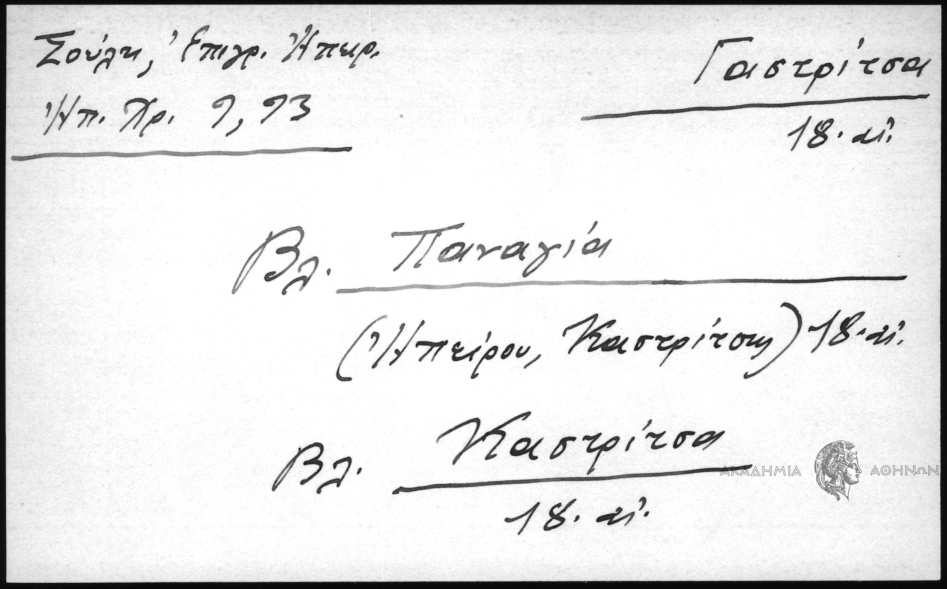 Σούλη, Ἐπιγρ. Ἠπειρ.
Ἠπ. Χρ. 9, 93
Γαστρίτσα
18. αἰ.
Βλ. Παναγία
(Ἠπείρου, Καστρίτσης) 18. αἰ.
Βλ. Καστρίτσα
18. αἰ.
ΑΚΑΔΗΜΙΑ ΑΘΗΝΩΝ